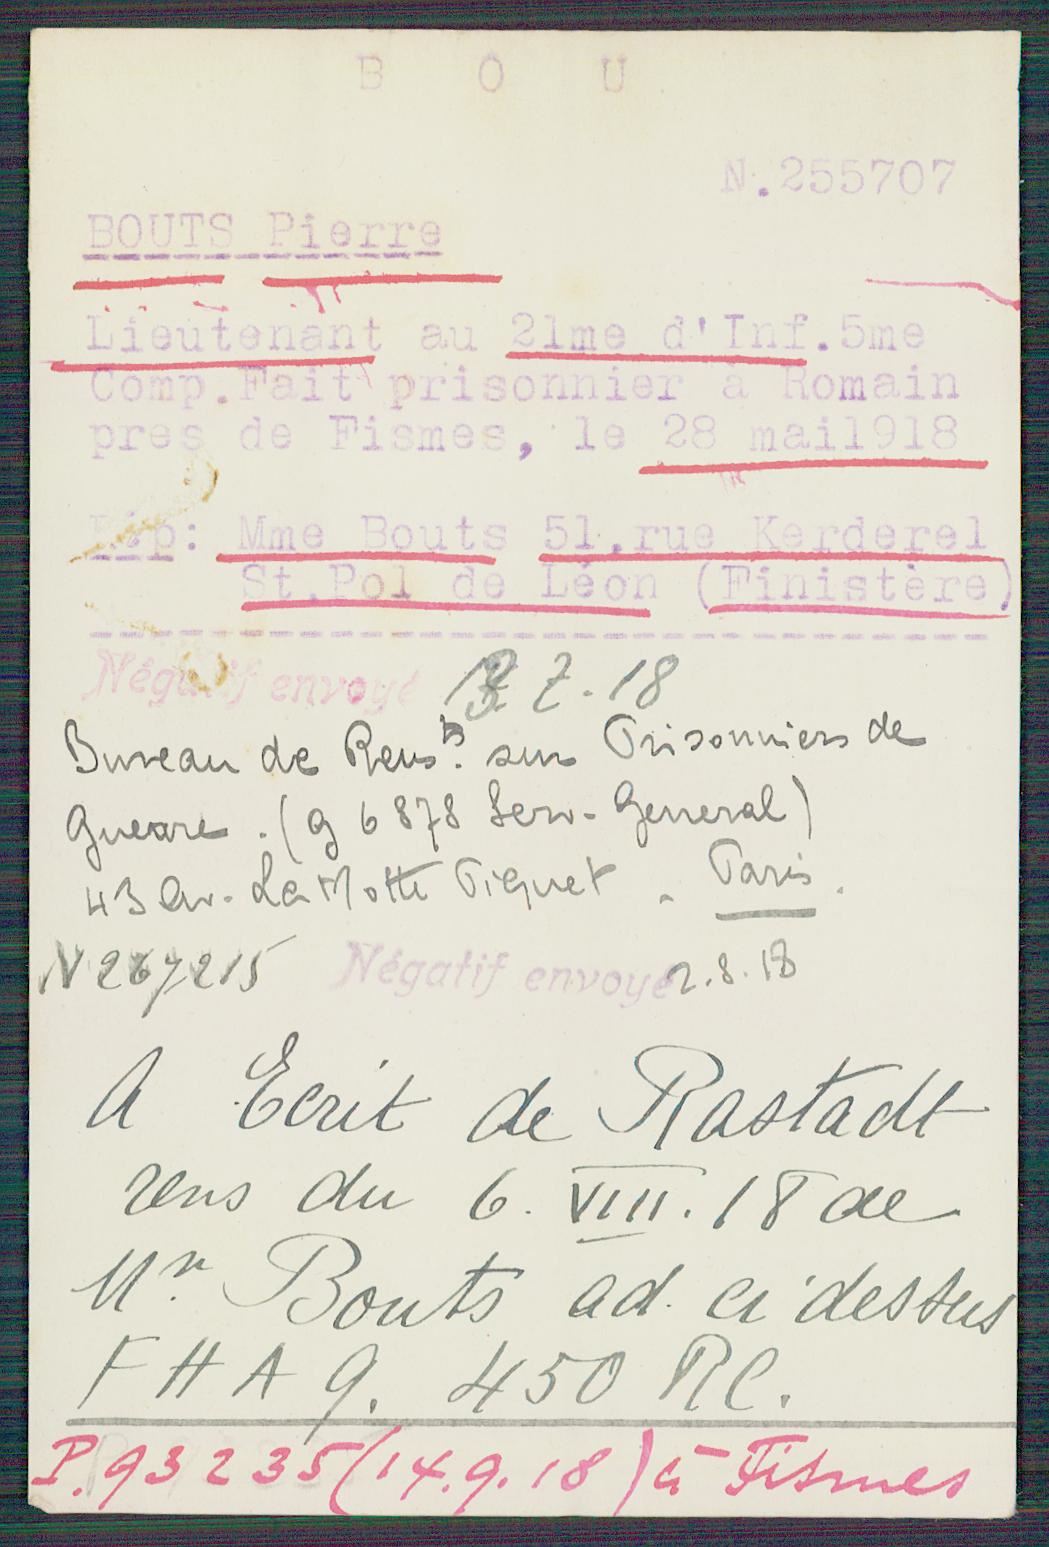 B O U
N.255707
BOUTS Pierre
Lieutenant au 21me d'Inf.5me
Comp.Fait prisonnier à Romain
pres de Fismes, le 28 mai1918
Rép: Mme Bouts 51,rue Kerderel
St.Pol de Léon (Finistère)
Négatif envoyé 7.18
Bureau de Rens.ts sur Prisonniers de
Guerre. (G 6878 Serv. General)
43 Av. La Motte Piquet. Paris.
N 267215 Négatif envoyé 2.8.18
A Ecrit de Rastadt
rens du 6. VIII. 18 de
Mr. Bouts ad. ci dessus
F H A 9. 450 RC.
P.93235 (14.9.18) à Fismes